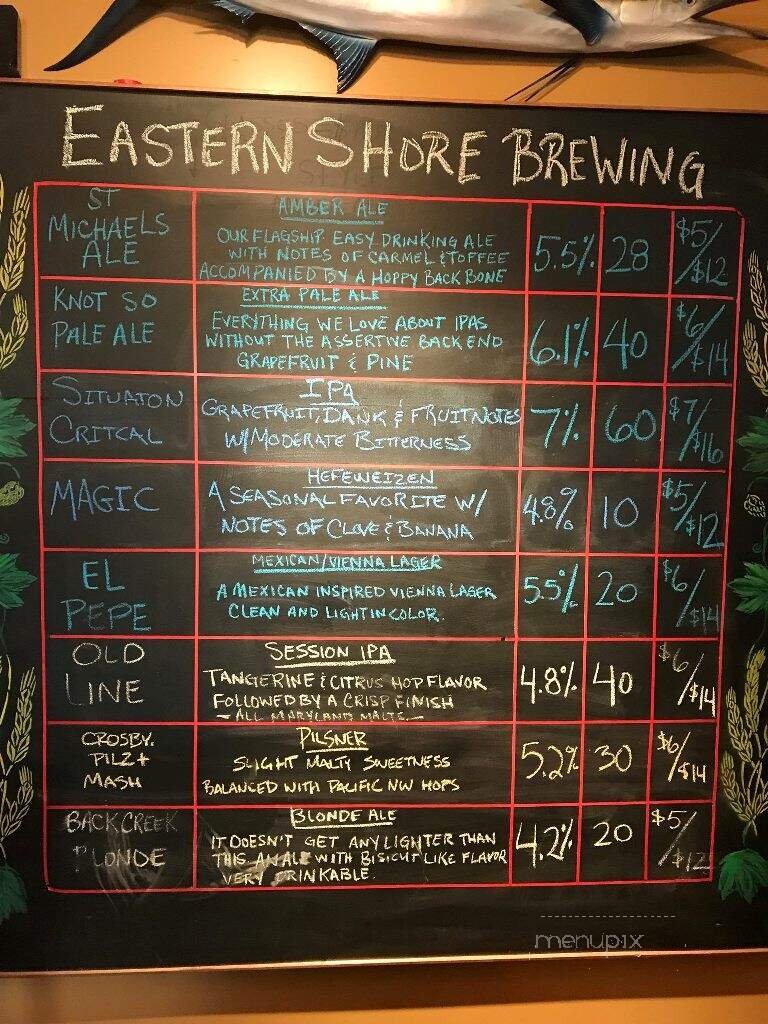 EASTERN SHORE BREWING
ST
MICHAELS
ALE
AMBER ALE
OUR FLAGSHIP EASY DRINKING ALE
WITH NOTES OF CARMEL & TOFFEE
ACCOMPANIED BY A HOPPY BACK BONE
5.5%
28
$5/
$12
KNOT SO
PALE ALE
EXTRA PALE ALE
EVERYTHING WE LOVE ABOUT IPAS
WITHOUT THE ASSERTIVE BACK END
GRAPEFRUIT & PINE
6.1%
40
$6/
$14
SITUATON
CRITCAL
IPA
GRAPEFRUIT, DANK & FRUIT NOTES
W/ MODERATE BITTERNESS
7%
60
$7/
$16
MAGIC
HEFEWEIZEN
A SEASONAL FAVORITE W/
NOTES OF CLOVE & BANANA
4.8%
10
$5/
$12
EL
PEPE
MEXICAN/VIENNA LAGER
A MEXICAN INSPIRED VIENNA LAGER
CLEAN AND LIGHT IN COLOR.
5.5%
20
$6/
$14
OLD
LINE
SESSION IPA
TANGERINE & CITRUS HOP FLAVOR
FOLLOWED BY A CRISP FINISH
- ALL MARYLAND MALTS -
4.8%
40
$6/
$14
CROSBY.
PILZ +
MASH
PILSNER
SLIGHT MALTY SWEETNESS
BALANCED WITH PACIFIC NW HOPS
5.2%
30
$6/
$14
BACK CREEK
BLONDE
BLONDE ALE
IT DOESN'T GET ANY LIGHTER THAN
THIS AN ALE WITH BISICUT LIKE FLAVOR
VERY DRINKABLE.
4.2%
20
$5/
$12
menupix